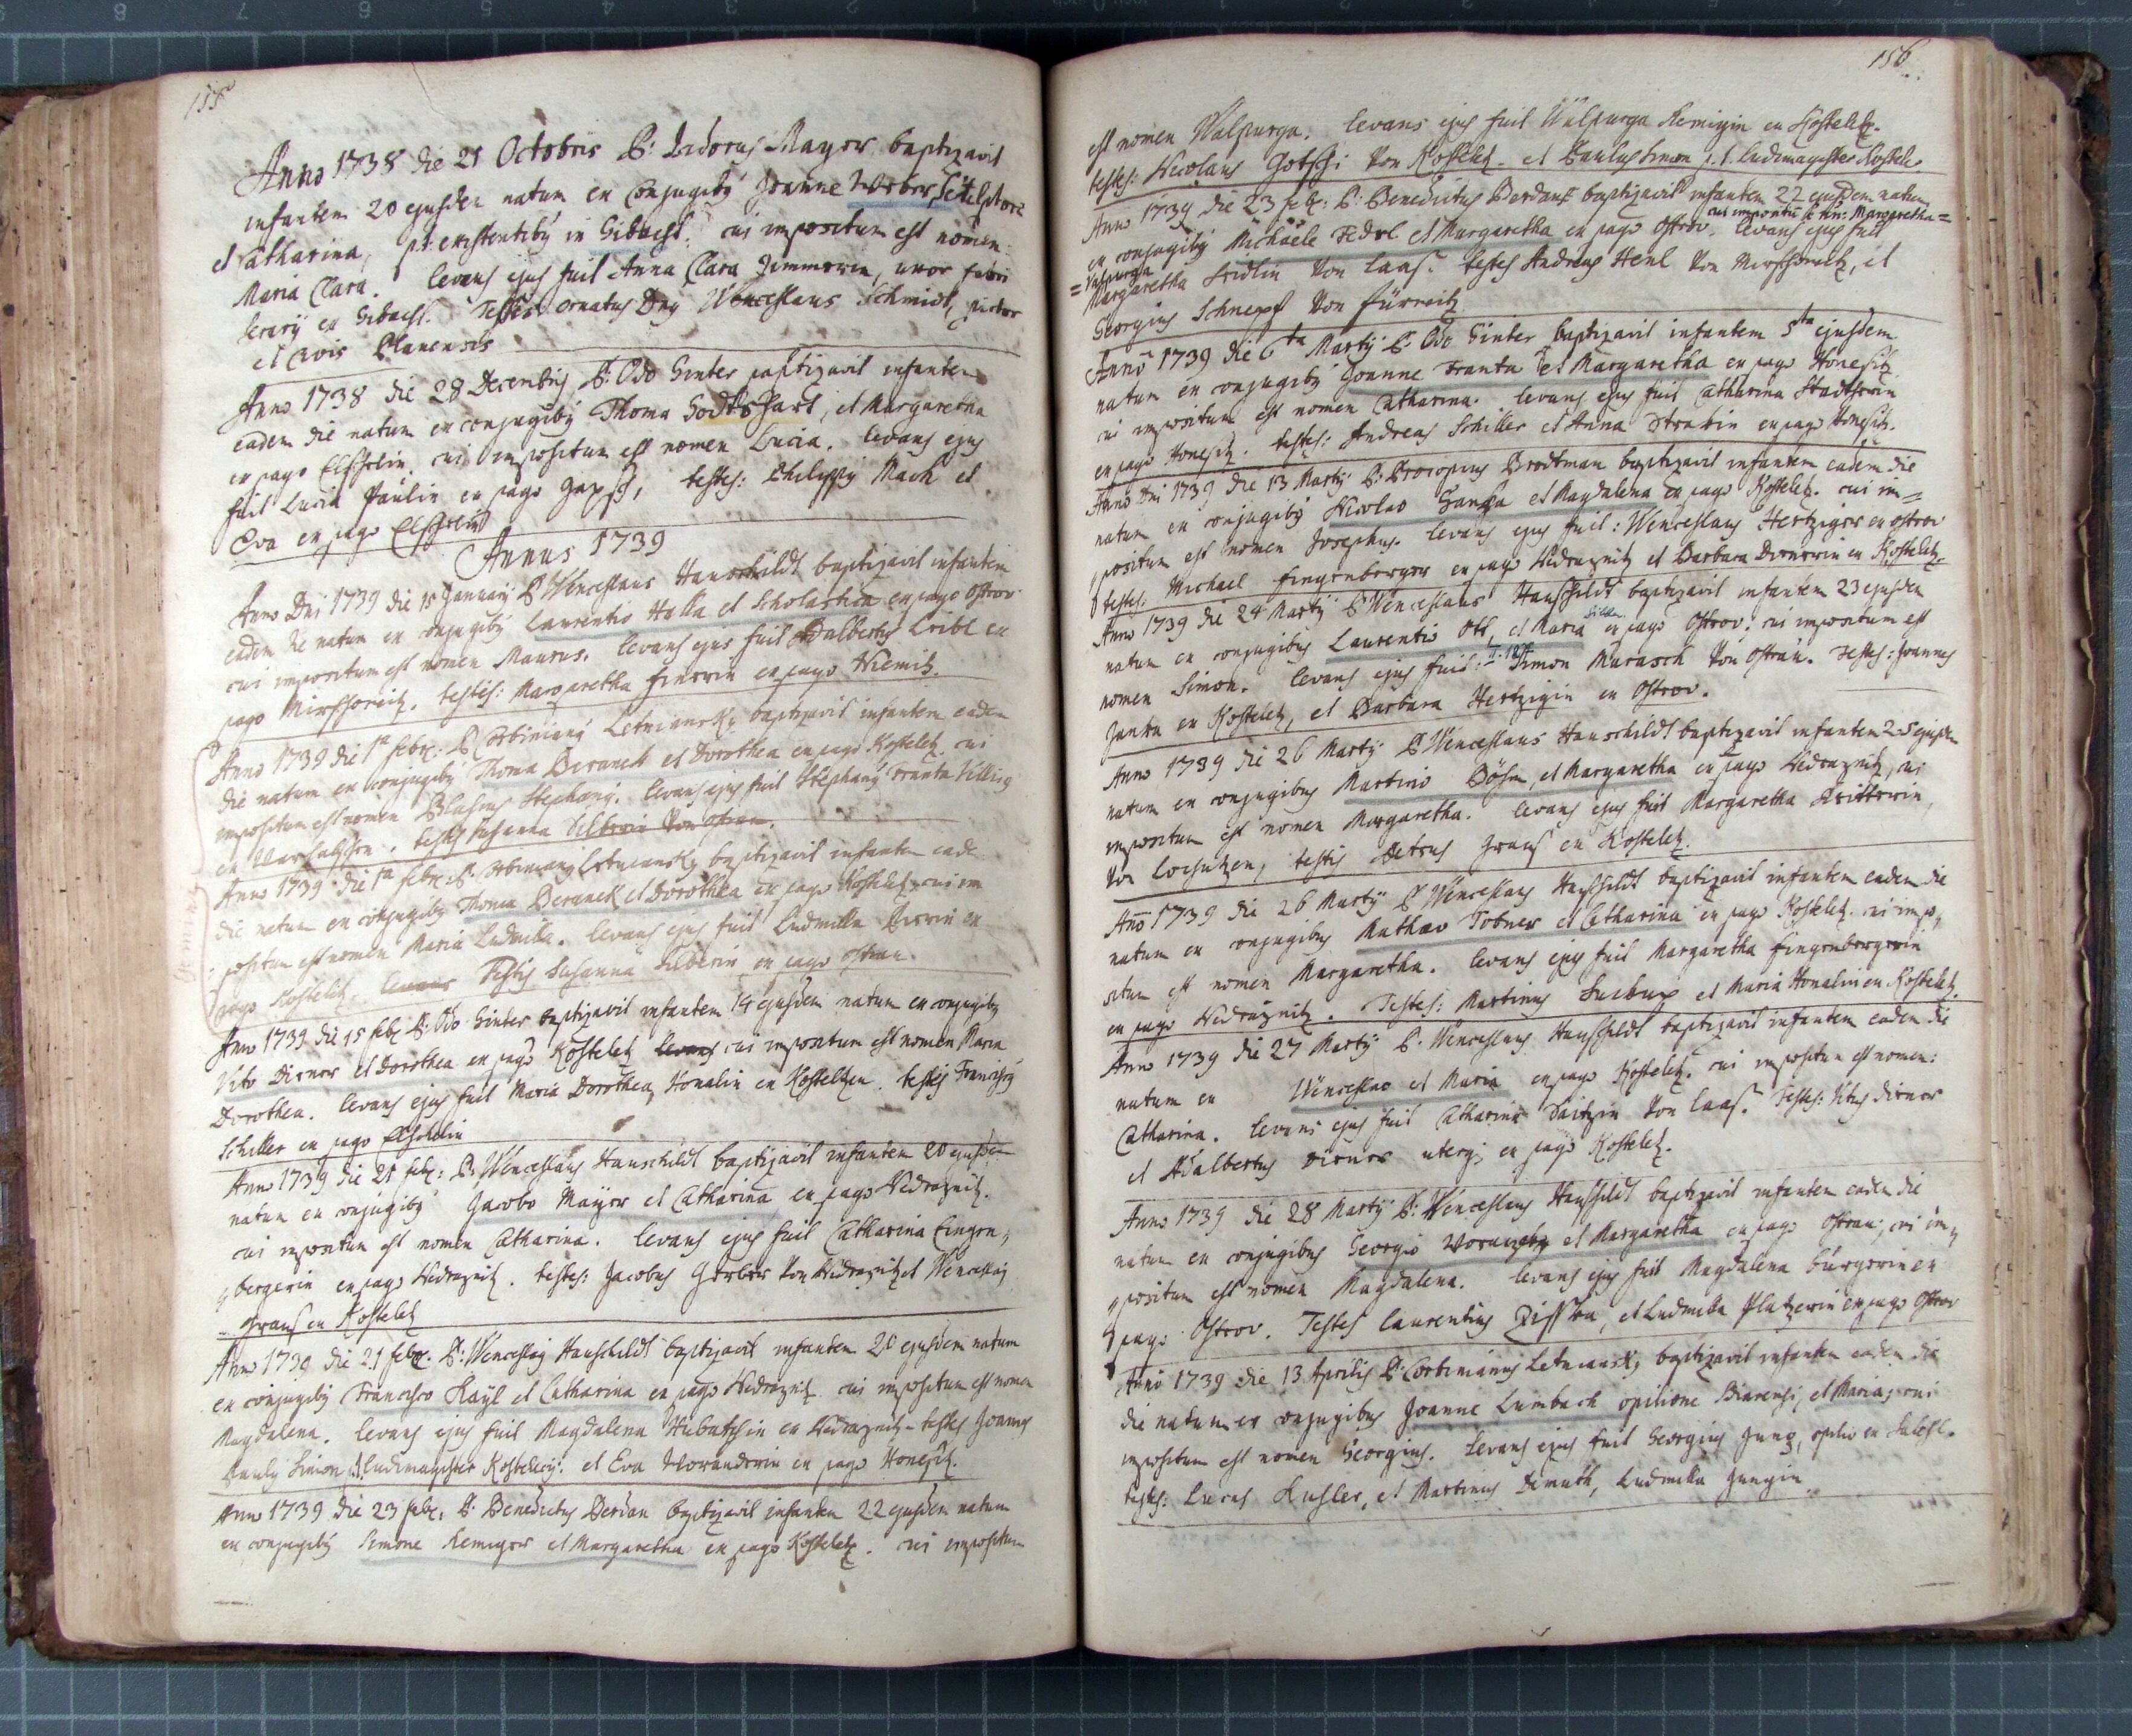 155
Anno 1738 die 21 Octobris P: Isidorus Mayer baptizavit
infantem 20 ejusdem natum ex Conjugibg Joanne Weber,
et Catharina, p.t. existentibg in Gibacht. cui impositum est nomen
Maria Clara. levans ejus fuit Anna Clara Zimmerin, uxor fabri
ferarij ex Gibacht. Testes ornatus Dng Wenceslaus Schmidt, pictor
et civis Planensis
Anno 1738 die 28 Decembris P: Odo Ginter baptizavit infantem
eadem die natum ex conjugibg Thoma Godtshart, et Margaretha
ex pago Elschelin. cui impositum est nomen Lucia. levans ejus
fuit Lucia Paulin ex pago, testes: Philippg Mach et
Eva ex pago Elschelin
Annus 1739
Anno Dni 1739 die 15 Januarij P Wenceslaus Hauschildt baptizavit infantem
eadem die natum ex conjugibg Laurentio Halla et Scholastica ex pago Ostrov
cui impositum est nomen Maurus. levans ejus fuit Adalbertus Leibl ex
pago. testes: Margaretha ex pago Wiemitz.
Anno 1739 die 1ma febr: P Corbiniang Letniansky baptizavit infantem eadem
die natum ex conjugibg Thoma Beranek et Dorothea ex pago Kosteletz cui
impositum est nomen Blasius Stephang. levans ejus fuit Stephang Franta
ex. testes Susanna Silberin von Ostrau.
Anno 1739 die 1ma febr P Corbiniang Letniansky baptizavit infantem eade
die natum ex conjugibg Thoma Beranek et Dorothea ex pago Kosteletz, cui im
positum est nomen Maria Ludmilla. levans ejus fuit Ludmilla ex
pago Kosteletz. levans Testis Susanna Silberin ex pago Ostrau.
Gemini
Anno 1739 die 15 febr P: Odo Ginter baptizavit infantem 14 ejusdem natum ex conjugibg
Vito Dirner et Dorothea ex pago Kosteletz levans cui impositum est nomen Maria
Dorothea. levans ejus fuit Maria Dorothea Homalin ex Kosteltzen. testes Franciscg
Schiller ex pago Elschelin
Anno 1739 die 21 febr: P: Wenceslaus Hauschildt baptizavit infantem 20 ejusdem
natum ex conjugibg Jacobo Mayer et Catharina ex pago Wedraznitz.
cui impositum est nomen Catharina. levans ejus fuit Catharina Fingen,
bergerin ex pago Wedraznitz. testes: Jacobus Gerber von Wedraznitz et Wenceslag
Graus ex Kosteletz
Anno 1739 die 21 febr. P: Wenceslag Hauschildt baptizavit infantem 20 ejusdem natum
ex conjugibg Francisco Kayl et Catharina ex pago Wedraznitz cui impositum est nomen
Magdalena. levans ejus fuit Magdalena Hubatschin ex Wedraznitz - testes Joannes
Paulg Simon p.t. ludimagister Kostelecij. et Eva Woranderin ex pago Honesitz.
Anno 1739 die 23 febr. P: Benedictus Derdau baptizavit infantem 22 ejusdem natum
ex conjugibg Simone Remiger et Margaretha ex pago Kosteletz. cui impositum
156
est nomen Walpurga. levans ejus fuit Walpurga Remigin ex Kosteletz.
testes: Nicolaus Gotschi von Kosteletz. et Paulus Simon p.t. ludimagister Kostele.
Anno 1739 die 23 febr: P: Benedictus Derdau baptizavit infantem 22 ejusdem natum
cui impositu e nn: Margaretha =
ex conjugibg Michaele Fedel et Margaretha ex pago Ostrov. levans ejus fuit
= Valpurga
Margaretha Fridlin von Laas. testes Andreas Henl von, et
Georgius Schnepf von Fürwitz
Anno 1739 die 6ta Martij P: Odo Ginter baptizavit infantem 5ta ejusdem
natum ex conjugibg Joanne Franta et Margaretha ex pago Honesitz
cui impositum est nomen Catharina. levans ejus fuit Catharina
ex pago Honesitz. testes: Andreas Schiller et Anna Strakin ex pago Honesitz.
Anno Dni 1739 die 13 Martij P: Procopius Brodtman baptizavit infantem eadem die
natum ex conjugibg Nicolao Hanska et Magdalena ex pago Kosteletz. cui im =
positum est nomen Josephus. levans ejus fuit: Wenceslaus Hertziger ex Ostrov
testes: Michael Fingenberger ex pago Wedraznitz et Barbara Dirnerin ex Kosteletz.
Anno 1739 die 24 Martij P Wenceslaus Hauschildt baptizavit infantem 23 ejusdem
natum ex conjugibus Laurentio Ott, et Maria ex pago Ostrov. cui impositum est
nomen Simon. levans ejus fuit: Simon Marasch von Ostrau. Testes: Joannes
Janka ex Kosteletz, et Barbara Hertzigin ex Ostrov.
Anno 1739 die 26 Martij P Wenceslaus Hauschildt baptizavit infantem 25 ejusdem
natum ex conjugibus Martino Böhm, et Margaretha ex pago Wedraznitz, cui
impositum est nomen Margaretha. levans ejus fuit Margaretha
von Lochutzen, testis Petrus Graus ex Kosteletz.
Anno 1739 die 26 Martij P Wenceslaus Hauschildt baptizavit infantem eadem die
natum ex conjugibus Mathaeo Tobner et Catharina ex pago Kosteletz. cui impo,
situm est nomen Margaretha. levans ejus fuit Margaretha Fingenbergerin
ex pago Wedraznitz. Testes: Martinus et Maria Homalin ex Kosteletz.
Anno 1739 die 27 Martij P. Wenceslaus Hauschildt baptizavit infantem eadem die
natum ex Wenceslao et Maria ex pago Kosteletz. cui impositum est nomen:
Catharina. levans ejus fuit Catharina von Laas. Testes: Vitus Dirner
et Adalbertus Dirner uterq; ex pago Kosteletz.
Anno 1739 die 28 Martij P: Wenceslaus Hauschildt baptizavit infantem eadem die
natum ex conjugibus Georgio et Margaretha ex pago Ostrau, cui im,
positum est nomen Magdalena. levans ejus fuit Magdalena bürgerin ex
pago Ostrov. Testes Laurentius, et Ludmilla Platzerin ex pago Ostrov
Anno 1739 die 13 Aprilis P: Corbinianus Letniansky baptizavit infantem eadem die
die natum ex conjugibus Joanne Limbach opilione, et Maria, cui
impositum est nomen Georgius. Levans ejus fuit Georgius Jung, opilio ex
testes: Lucas Kusler, et Martinus Demuth, Ludmilla Jungin.